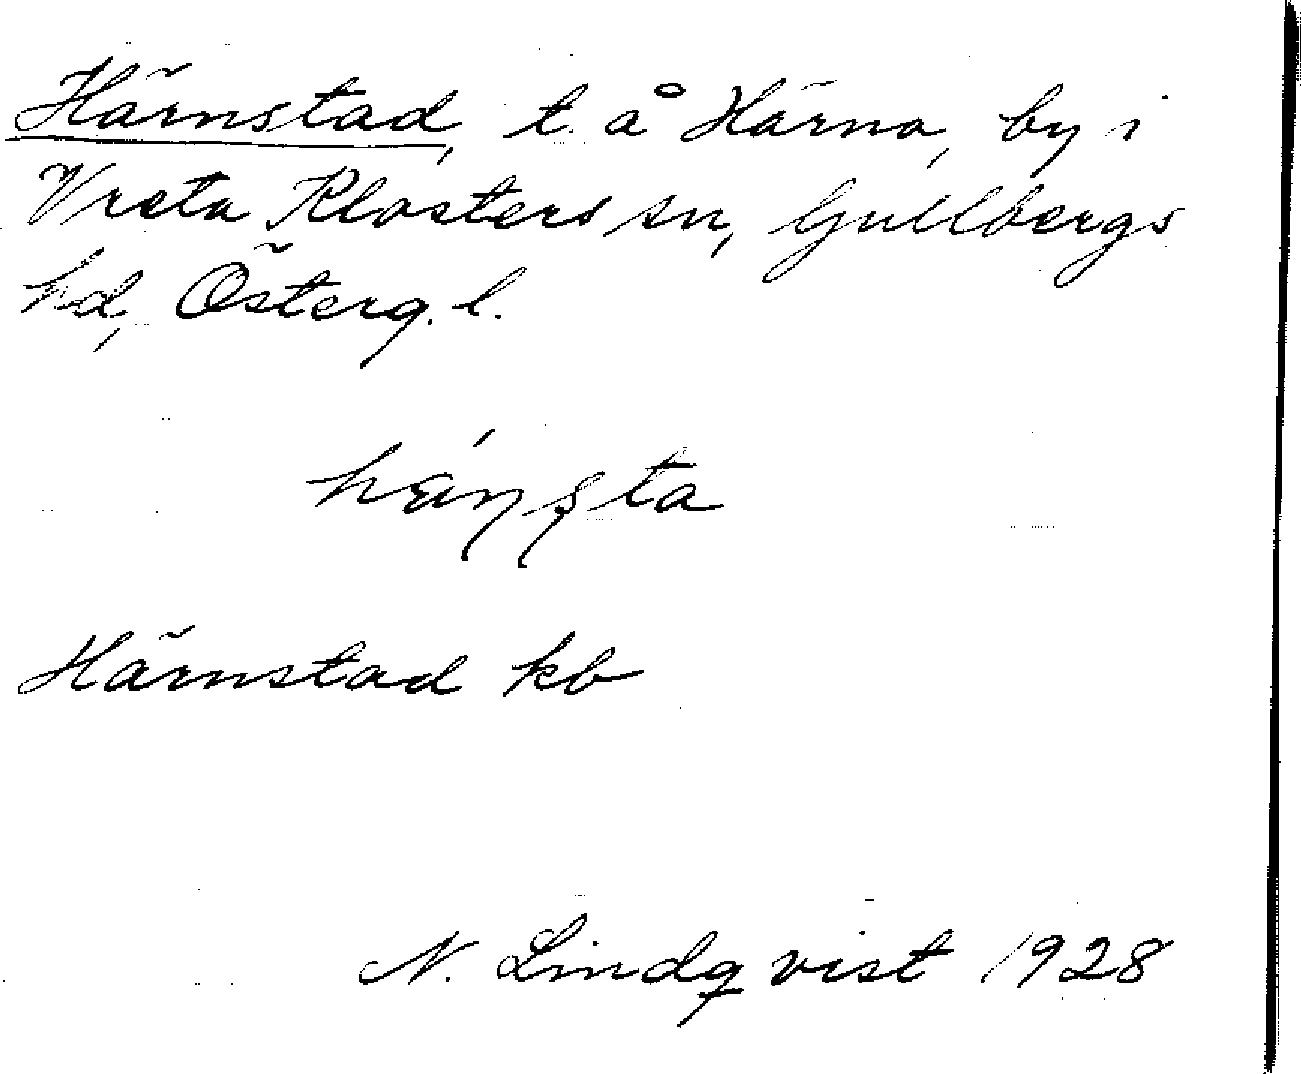 Härnstad, t. å Härna, by i
Vreta Klosters sn, Gullbergs
hd, Österg. l.
Härnstad kb
N. Lindqvist 1928